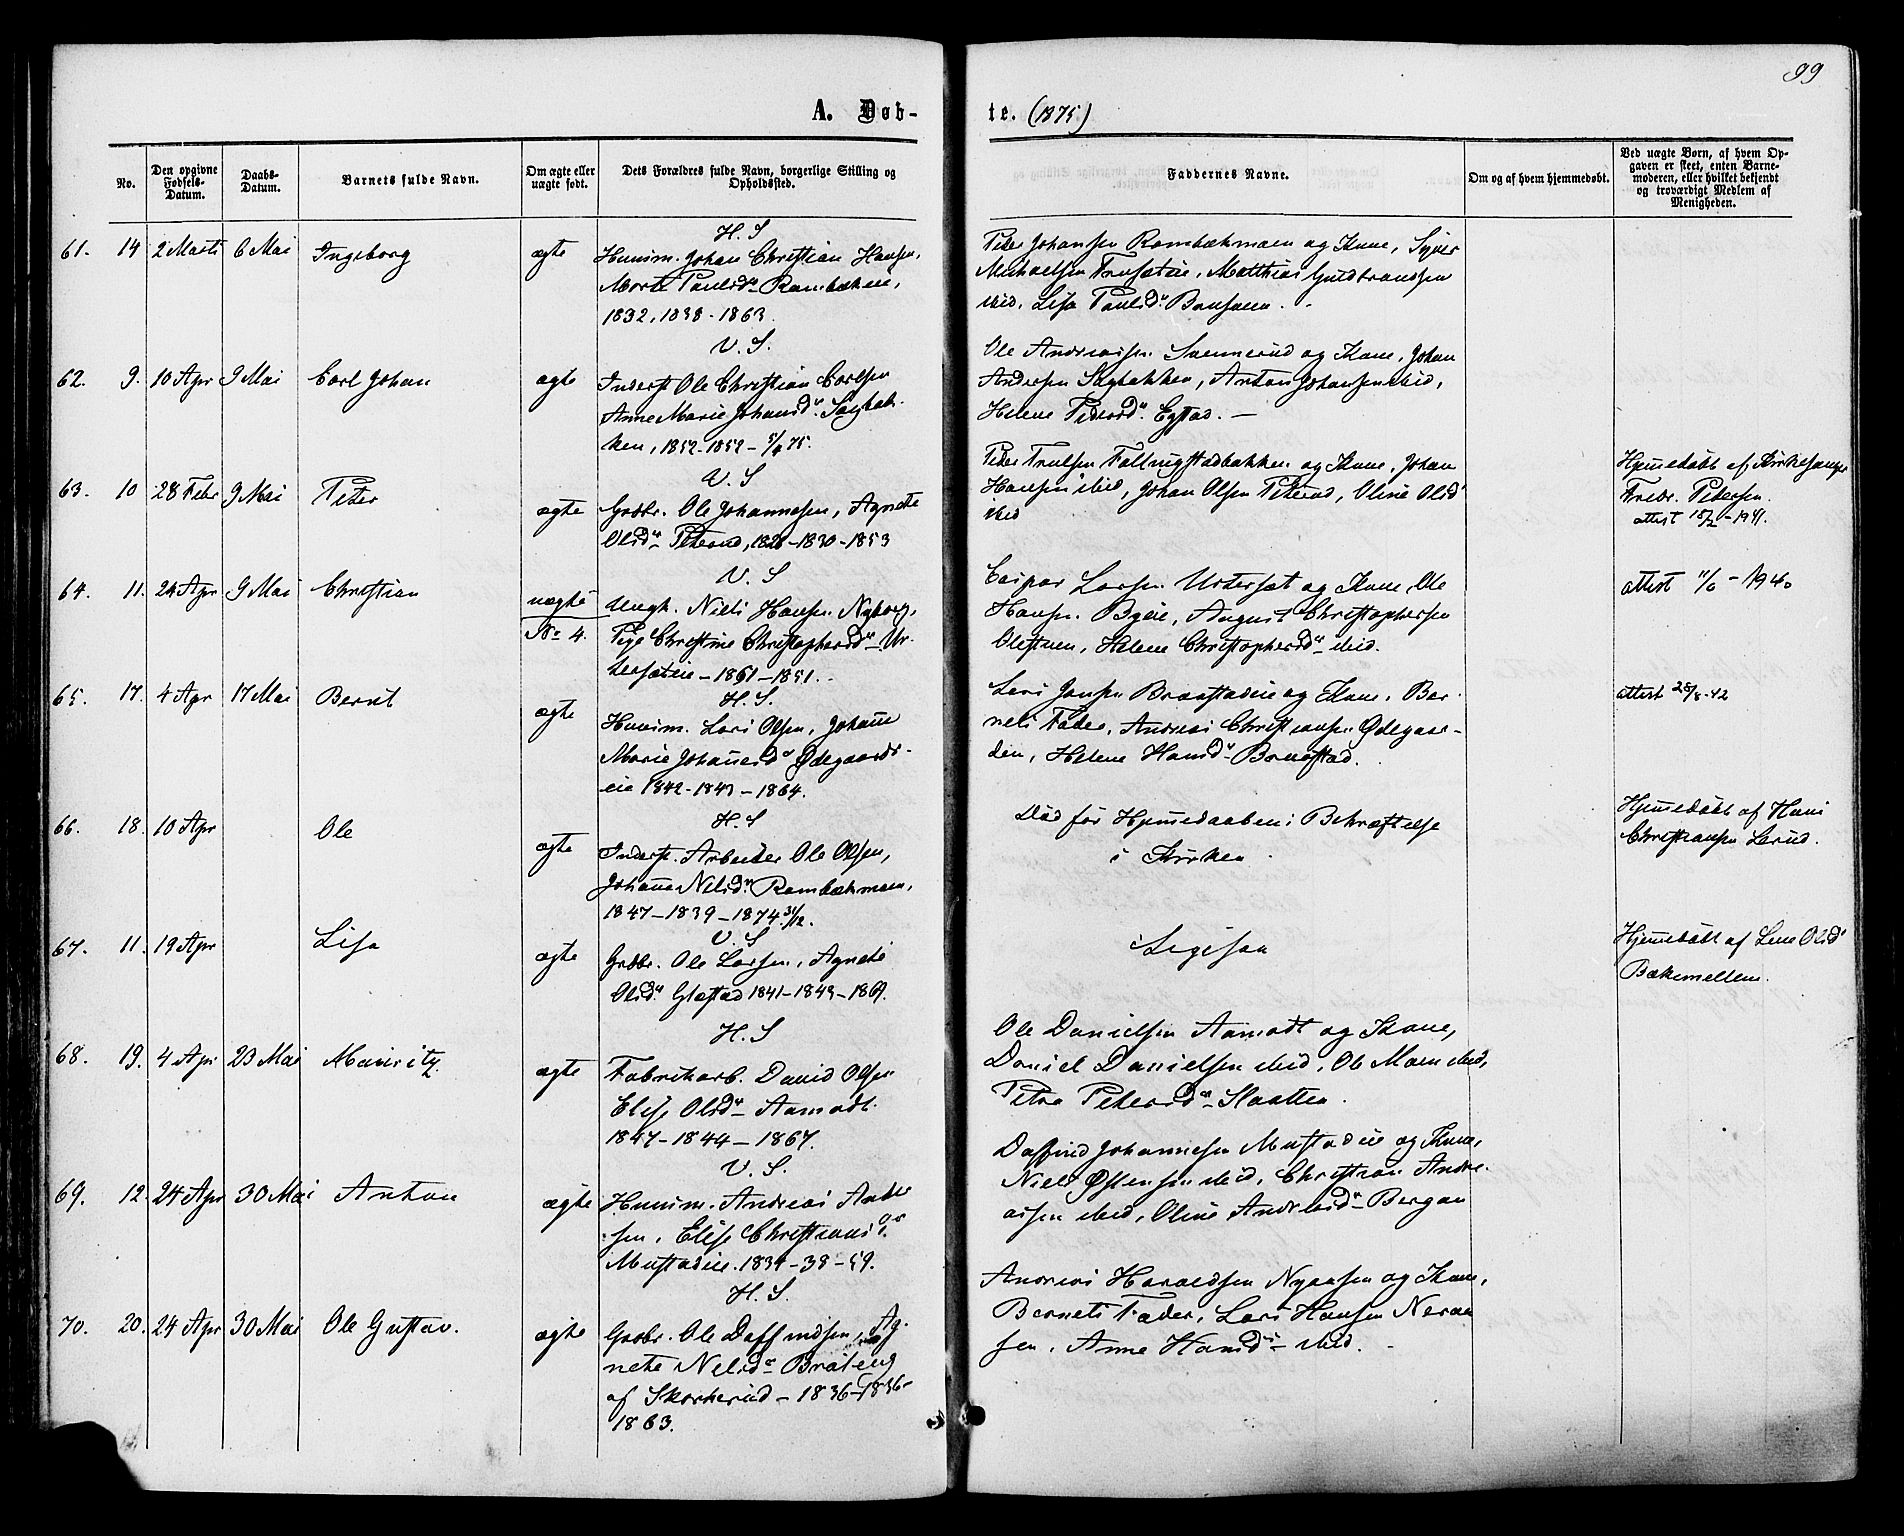 99
A. Døb-
te. (1875)
No.
Den opgivne Fødsels-Datum.
Daabs-Datum.
Barnets fulde Navn.
Om ægte eller uægte født.
Dets Forældres fulde Navn, borgerlige Stilling og Opholdssted.
Faddernes Navne.
Om og af hvem hjemmedøbt.
Ved uægte Børn, af hvem Op-
gaven er skeet, enten Barne-
moderen, eller hvilket bekjendt
og troværdigt Medlem af
Menigheden.
H. S
61. 14 2 Marts 6 Mai Ingeborg ægte
Huusm. Johan Christian Hansen,
Marte Paulsd. Rambækeie,
1832, 1838 - 1863.
Peder Johansen Rambækmoen og Kone, Syver
Michaelsen, Matthias Guldbrandsen
ibid, Lisa Paulsd.
V. S.
62. 9. 10 Apr 9 Mai Carl Johan ægte
Inderst Ole Christian Carlsen
Anne Marie Johansd. Sagbak-
ken, 1852-1852 - 5/4 75.
Ole Andreassen Svennerud og Kone, Johan
Andresen Sagbakken, Anton Johansen ibid,
Helene Pedersd. Egstad. —
V. S
63. 10 28 Febr 9 Mai Peter ægte
Grdbr. Ole Johannesen, Agnete
Olsd. Peterud, 1828-1830-1853
Peder Trulsen og Kone, Johan
Hansen ibid, Johan Olsen Peterud, Oline Olsd
ibid
Hjemedøbt af Kirkesanger
Fredr. Pedersen.
attest 18/2 - 1941.
V. S
64. 11. 24 Apr 9 Mai Christian uægte
No 4.
Ungk. Niels Hansen Nyborg,
Pige Christine Christophersd. Ur-
- 1851 - 1851.
Caspar Larsen Urterset og Kone, Ole
Hansen Byeie, August Christophersen
Olestuen, Helene Christophersd. ibid.
attest 11/6 - 1940
H. S.
65. 17. 4 Apr 17 Mai Bernt ægte
Huusm. Lars Olsen, Johanne
Marie Johannesd. Ødegaards-
eie 1842-1843-1864.
Lars Jensen Braastadeie og Kone, Bar-
nets Fader, Andreas Christiansen Ødegaar-
den, Helene Hansd. Braastad.
attest 25/8-42
H. S
66. 18. 10 Apr Ole ægte
Inderst. Arbeider Ole Olsen,
Johanne Nilsd. Rambækmoen,
1847-1839-1874 31/12.
Død før Hjemedaabens Bekræftelse
i Kirken.
Hjemedøbt af Hans
Christiansen Lerud.
V. S
67. 11. 19 Apr Lisa ægte
Grdbr. Ole Larsen, Agnete
Olsd. Glæstad 1841-1843-1869.
Ligesaa
Hjemedøbt af Lene Olsd
Bækkemellem.
H. S
68. 19. 4 Apr 23 Mai Mauritz ægte
Fabrikarb. David Olsen
Elise Olsd. Aamodt.
1847-1844-1867.
Ole Danielsen Aamodt og Kone,
Daniel Danielsen ibid, Ole Moen ibid,
Petra Petersd. Slaatten.
V. S.
69. 12. 24 Apr 30 Mai Anton ægte
Huusm. Andreas Ander
sen, Elise Christiansd.
Mustadeie. 1834-38-59.
Daffind Johannesen Mustadeie og Kone,
Niels Østensen ibid, Christian Andre-
assen ibid, Oline Andreasd. Bergan
H. S.
70. 20. 24 Apr 30 Mai Ole Gustav. ægte
Grdbr. Ole Daffindsen, Ag-
nete Nilsd. Bråteng
af Skonherud - 1836-1836-
1863.
Andreas Haraldsen Nyaasen og Kone,
Barnets Fader, Lars Hansen Neraa
sen, Anne Hansd. ibid.